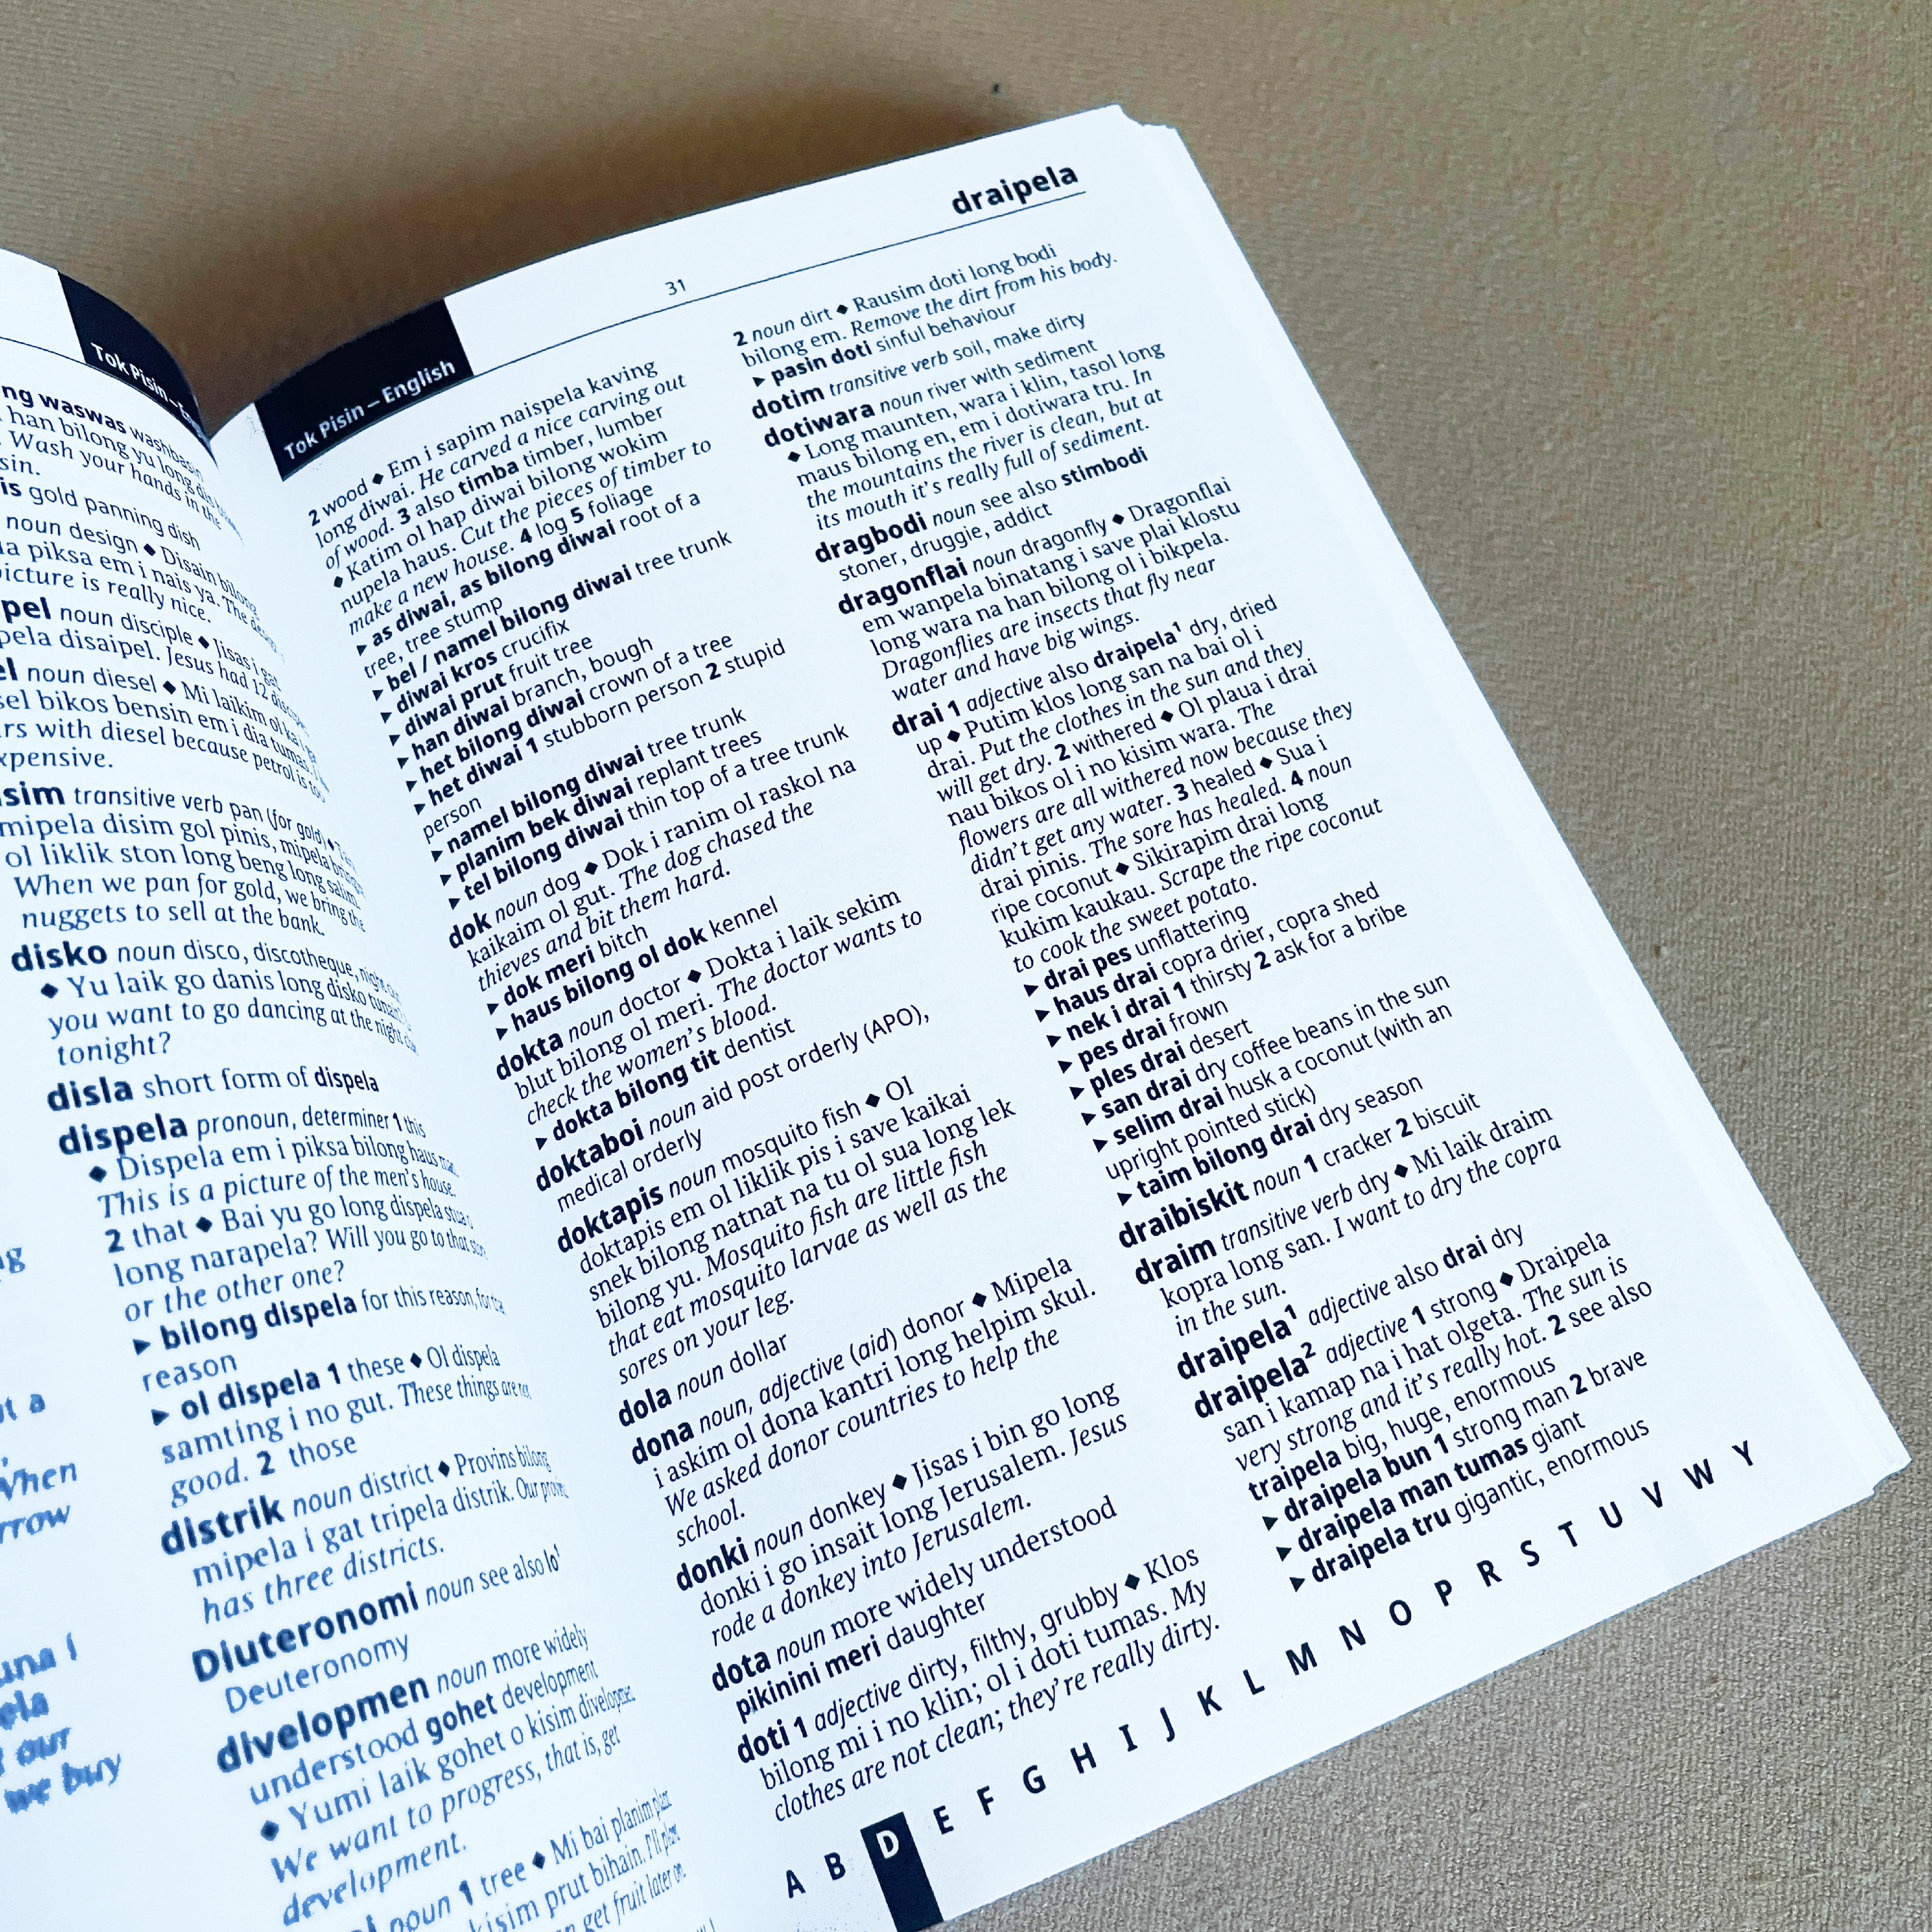 Tok Pisin – En
ng waswas washbasin
han bilong yu long dis
Wash your hands in the
sin.
is gold panning dish
noun design ◆ Disain bilong
a piksa em i nais ya. The design
picture is really nice.
pel noun disciple ◆ Jisas i gat
pela disaipel. Jesus had 12
el noun diesel ◆ Mi laikim ol ka i
sel bikos bensin em i dia tumas. I
rs with diesel because petrol is too
xpensive.
sim transitive verb pan (for gold) ◆
mipela disim gol pinis, mipela
ol liklik ston long beng long salim.
When we pan for gold, we bring the
nuggets to sell at the bank.
disko noun disco, discotheque,
◆ Yu laik go danis long disko
you want to go dancing at the night
tonight?
disla short form of dispela
dispela pronoun, determiner 1 this
◆ Dispela em i piksa bilong haus
This is a picture of the men's house.
2 that ◆ Bai yu go long dispela stua
long narapela? Will you go to that
or the other one?
▸ bilong dispela for this reason,
reason
▸ ol dispela 1 these ◆ Ol dispela
samting i no gut. These things are
good. 2 those
distrik noun district ◆ Provins bilong
mipela i gat tripela distrik. Our
has three districts.
Diuteronomi noun see also lo¹
Deuteronomy
divelopmen noun more widely
understood gohet development
◆ Yumi laik gohet o kisim
We want to progress, that is, get
development.
noun 1 tree ◆ Mi bai planim
kisim prut bihain. I'll
get fruit later on.
Tok Pisin – English
31
draipela
2 wood ◆ Em i sapim naispela kaving
long diwai. He carved a nice carving out
of wood. 3 also timba timber, lumber
◆ Katim ol hap diwai bilong wokim
nupela haus. Cut the pieces of timber to
make a new house. 4 log 5 foliage
▸ as diwai, as bilong diwai root of a
tree, tree stump
▸ bel / namel bilong diwai tree trunk
▸ diwai kros crucifix
▸ diwai prut fruit tree
▸ han diwai branch, bough
▸ het bilong diwai crown of a tree
▸ het diwai 1 stubborn person 2 stupid
person
▸ namel bilong diwai tree trunk
▸ planim bek diwai replant trees
▸ tel bilong diwai thin top of a tree trunk
dok noun dog ◆ Dok i ranim ol raskol na
kaikaim ol gut. The dog chased the
thieves and bit them hard.
▸ dok meri bitch
▸ haus bilong ol dok kennel
dokta noun doctor ◆ Dokta i laik sekim
blut bilong ol meri. The doctor wants to
check the women's blood.
▸ dokta bilong tit dentist
doktaboi noun aid post orderly (APO),
medical orderly
doktapis noun mosquito fish ◆ Ol
doktapis em ol liklik pis i save kaikai
snek bilong natnat na tu ol sua long lek
bilong yu. Mosquito fish are little fish
that eat mosquito larvae as well as the
sores on your leg.
dola noun dollar
dona noun, adjective (aid) donor ◆ Mipela
i askim ol dona kantri long helpim skul.
We asked donor countries to help the
school.
donki noun donkey ◆ Jisas i bin go long
donki i go insait long Jerusalem. Jesus
rode a donkey into Jerusalem.
dota noun more widely understood
pikinini meri daughter
doti 1 adjective dirty, filthy, grubby ◆ Klos
bilong mi i no klin; ol i doti tumas. My
clothes are not clean; they're really dirty.
2 noun dirt ◆ Rausim doti long bodi
bilong em. Remove the dirt from his body.
▸ pasin doti sinful behaviour
dotim transitive verb soil, make dirty
dotiwara noun river with sediment
◆ Long maunten, wara i klin, tasol long
maus bilong en, em i dotiwara tru. In
the mountains the river is clean, but at
its mouth it's really full of sediment.
dragbodi noun see also stimbodi
stoner, druggie, addict
dragonflai noun dragonfly ◆ Dragonflai
em wanpela binatang i save plai klostu
long wara na han bilong ol i bikpela.
Dragonflies are insects that fly near
water and have big wings.
drai 1 adjective also draipela¹ dry, dried
up ◆ Putim klos long san na bai ol i
drai. Put the clothes in the sun and they
will get dry. 2 withered ◆ Ol plaua i drai
nau bikos ol i no kisim wara. The
flowers are all withered now because they
didn't get any water. 3 healed ◆ Sua i
drai pinis. The sore has healed. 4 noun
ripe coconut ◆ Sikirapim drai long
kukim kaukau. Scrape the ripe coconut
to cook the sweet potato.
▸ drai pes unflattering
▸ haus drai copra drier, copra shed
▸ nek i drai 1 thirsty 2 ask for a bribe
▸ pes drai frown
▸ ples drai desert
▸ san drai dry coffee beans in the sun
▸ selim drai husk a coconut (with an
upright pointed stick)
▸ taim bilong drai dry season
draibiskit noun 1 cracker 2 biscuit
draim transitive verb dry ◆ Mi laik draim
kopra long san. I want to dry the copra
in the sun.
draipela¹ adjective also drai dry
draipela² adjective 1 strong ◆ Draipela
san i kamap na i hat olgeta. The sun is
very strong and it's really hot. 2 see also
traipela big, huge, enormous
▸ draipela bun 1 strong man 2 brave
▸ draipela man tumas giant
▸ draipela tru gigantic, enormous
A B D E F G H I J K L M N O P R S T U V W Y